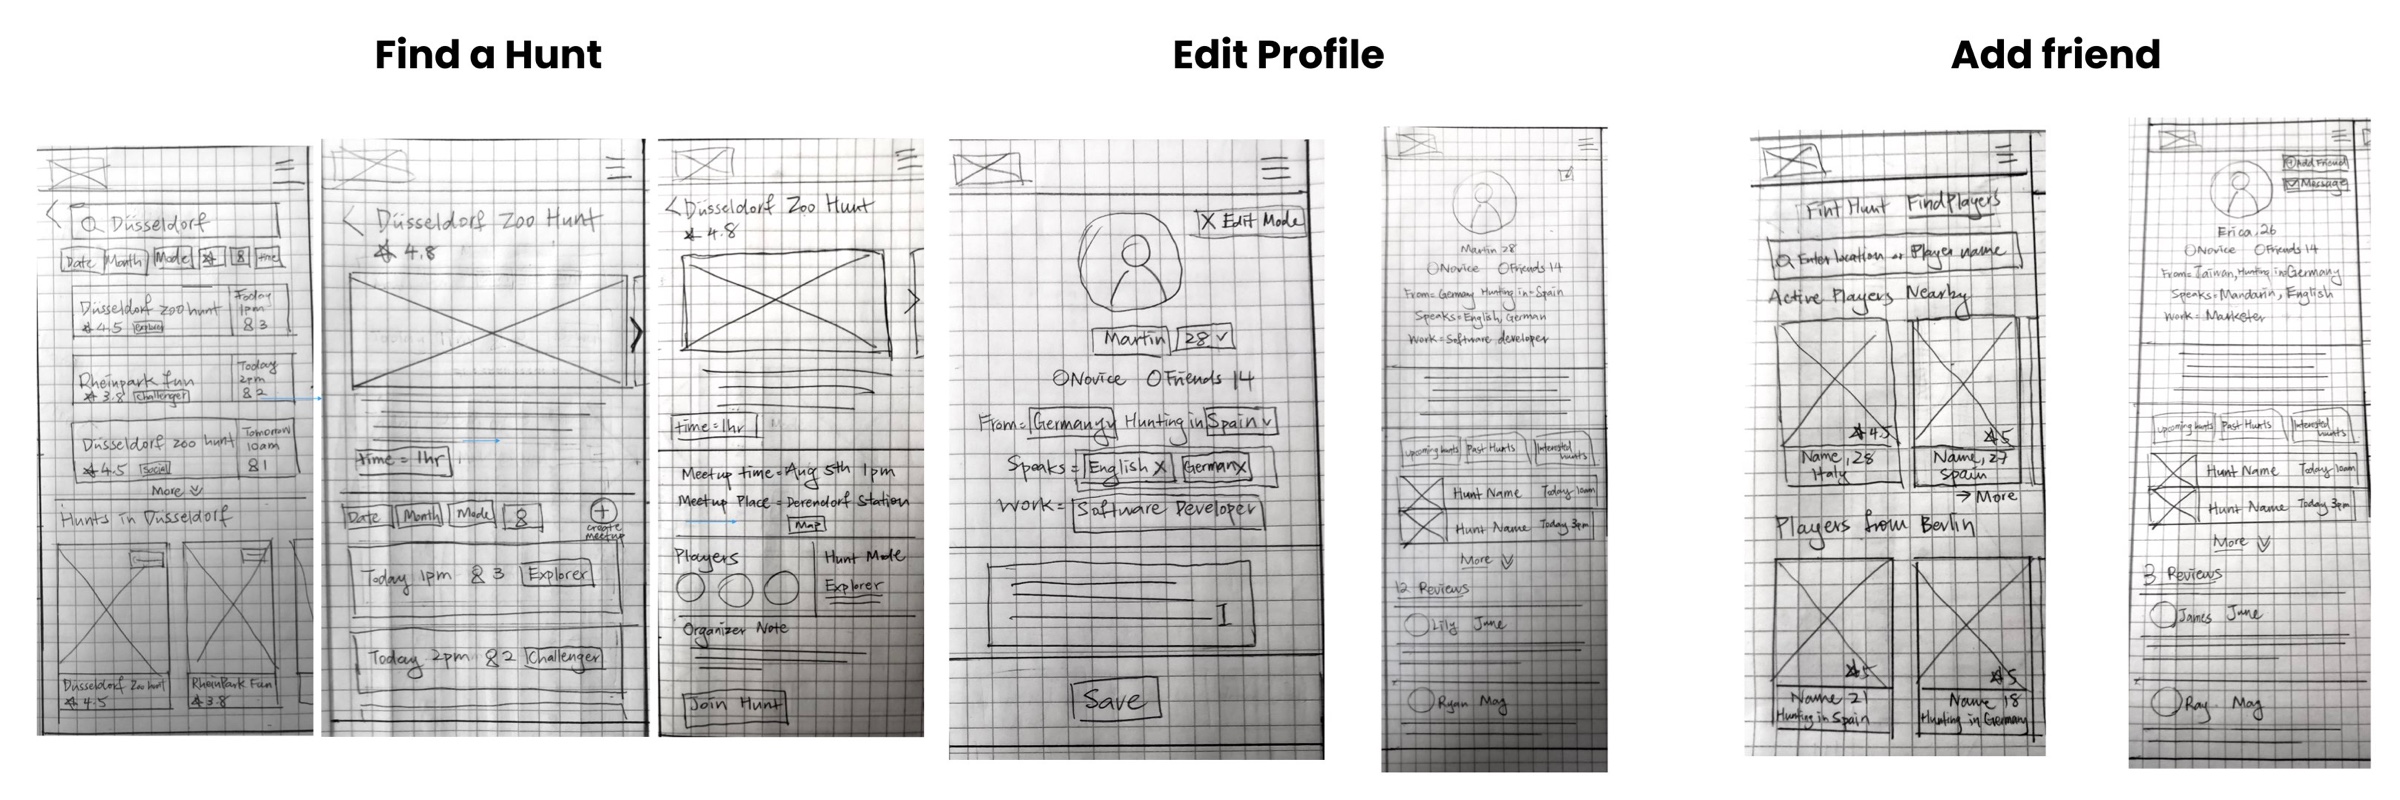 Find a Hunt
Edit Profile
Add friend
Düsseldorf
Date Month Mode
Düsseldorf zoo hunt
4.5
Today
1pm
3
Rheinpark fun
3.8 Challenger
Today
2pm
2
Düsseldorf zoo hunt
4.5 Social
Tomorrow
10am
1
More
Hunts in Düsseldorf
Düsseldorf Zoo hunt
4.5
RheinPark Fun
3.8
< Düsseldorf Zoo Hunt
4.8
>
time = 1hr
Date Month Mode
create
meetup
Today 1pm 3 Explorer
Today 2pm 2 Challenger
< Düsseldorf Zoo Hunt
4.8
>
time = 1hr
Meetup time = Aug 5th 1pm
Meetup Place = Derendorf Station
Map
Players
Hunt Mode
Explorer
Organizer Note
Join Hunt
X Edit Mode
Martin 28
Novice Friends 14
From = Germany Hunting in Spain
Speaks = English X German X
Work = Software Developer
Save
Martin 28
Novice Friends 14
From = Germany Hunting in = Spain
Speaks = English, German
Work = Software developer
upcoming hunts Past Hunts Interested hunts
Hunt Name Today 10am
Hunt Name Today 3pm
More
12 Reviews
Lily June
Ryan May
Fint Hunt Find Players
Enter location or Player name
Active Players Nearby
4.5
Name, 28
Italy
5
Name, 27
Spain
→ More
Players from Berlin
5
Name 21
Hunting in Spain
5
Name 18
Hunting in Germany
Add Friend
Message
Erica, 26
Novice Friends 14
From = Taiwan, Hunting in = Germany
Speaks = Mandarin, English
Work = Marketer
upcoming hunts Past Hunts Interested hunts
Hunt Name Today 10am
Hunt Name Today 3pm
More
3 Reviews
James June
Ray May